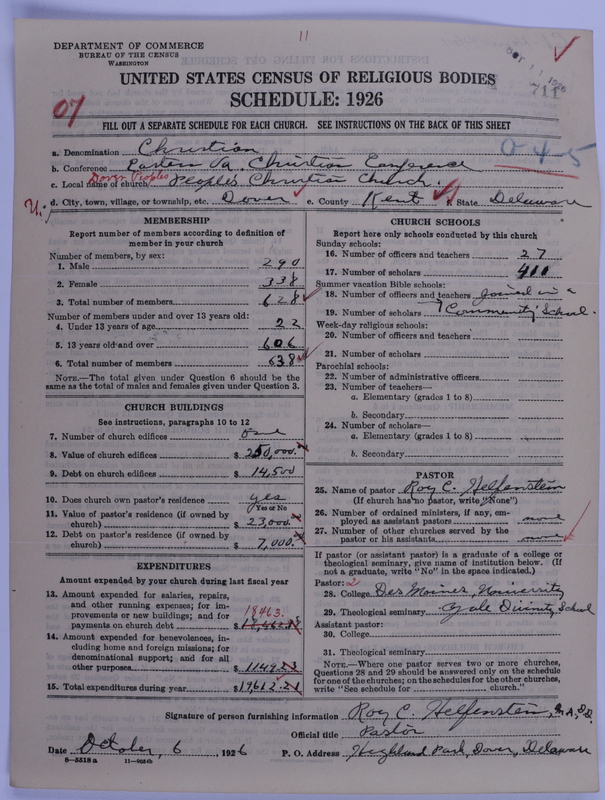 11
DEPARTMENT OF COMMERCE
BUREAU OF THE CENSUS
WASHINGTON
OCT 11 1926
711
UNITED STATES CENSUS OF RELIGIOUS BODIES
SCHEDULE: 1926
07
FILL OUT A SEPARATE SCHEDULE FOR EACH CHURCH. SEE INSTRUCTIONS ON THE BACK OF THIS SHEET
045
a. Denomination Christian
b. Conference Eastern Pa. Christian Conference
Dover Peoples
c. Local name of church Peoples Christian Church.
U. d. City, town, village, or township, etc. Dover e. County Kent f. State Delaware
MEMBERSHIP
Report number of members according to definition of
member in your church
Number of members, by sex:
1. Male 290
2. Female 338
3. Total number of members 628
Number of members under and over 13 years old:
4. Under 13 years of age 22
5. 13 years old and over 606
6. Total number of members 638
NOTE.—The total given under Question 6 should be the
same as the total of males and females given under Question 3.
CHURCH BUILDINGS
See instructions, paragraphs 10 to 12
7. Number of church edifices one
8. Value of church edifices $ 250,000.
9. Debt on church edifices $ 14,500
10. Does church own pastor's residence yes
Yes or No
11. Value of pastor's residence (if owned by
church) $ 23,000.
12. Debt on pastor's residence (if owned by
church) $ 7,000.
EXPENDITURES
Amount expended by your church during last fiscal year
13. Amount expended for salaries, repairs,
and other running expenses; for im-
provements or new buildings; and for 18463.
payments on church debt $
14. Amount expended for benevolences, in-
cluding home and foreign missions; for
denominational support; and for all
other purposes $ 1149.23
15. Total expenditures during year $ 19612.21
CHURCH SCHOOLS
Report here only schools conducted by this church
Sunday schools:
16. Number of officers and teachers 27
17. Number of scholars 411
Summer vacation Bible schools:
18. Number of officers and teachers joined in a
19. Number of scholars Community School.
Week-day religious schools:
20. Number of officers and teachers
21. Number of scholars
Parochial schools:
22. Number of administrative officers
23. Number of teachers—
a. Elementary (grades 1 to 8)
b. Secondary
24. Number of scholars—
a. Elementary (grades 1 to 8)
b. Secondary
PASTOR
25. Name of pastor Roy C. Helfenstein
(If church has no pastor, write "None")
26. Number of ordained ministers, if any, em-
ployed as assistant pastors none
27. Number of other churches served by the
pastor or his assistants none
If pastor (or assistant pastor) is a graduate of a college or
theological seminary, give name of institution below. (If
not a graduate, write "No" in the space indicated.)
Pastor: 2
28. College Des Moines, University
29. Theological seminary Yale Divinity School
Assistant pastor:
30. College
31. Theological seminary
NOTE.—Where one pastor serves two or more churches,
Questions 28 and 29 should be answered only on the schedule
for one of the churches; on the schedules for the other churches,
write "See schedule for church."
Signature of person furnishing information Roy C. Helfenstein, M.A., D.D.
Official title Pastor
Date October, 6, 1926 P. O. Address Highland Park, Dover, Delaware
8—5518 a 11—9054b